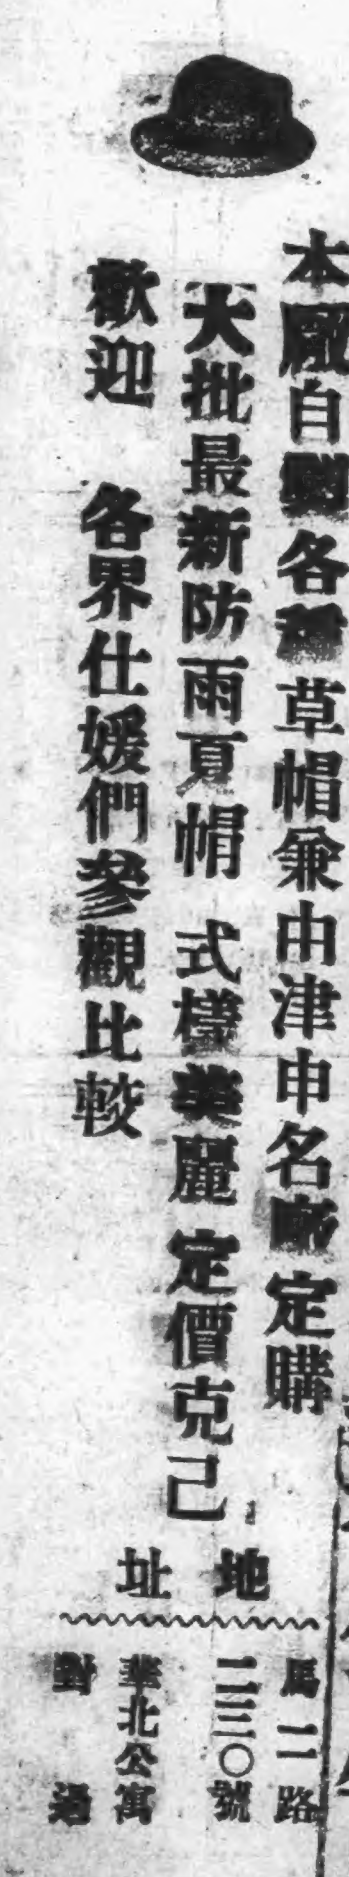 本廠自製各種草帽兼由津申名廠定購
大批最新防雨夏帽 式樣美麗 定價克己
歡迎 各界仕媛們參觀比較
地址
馬二路
二三〇號
華北公寓
對過